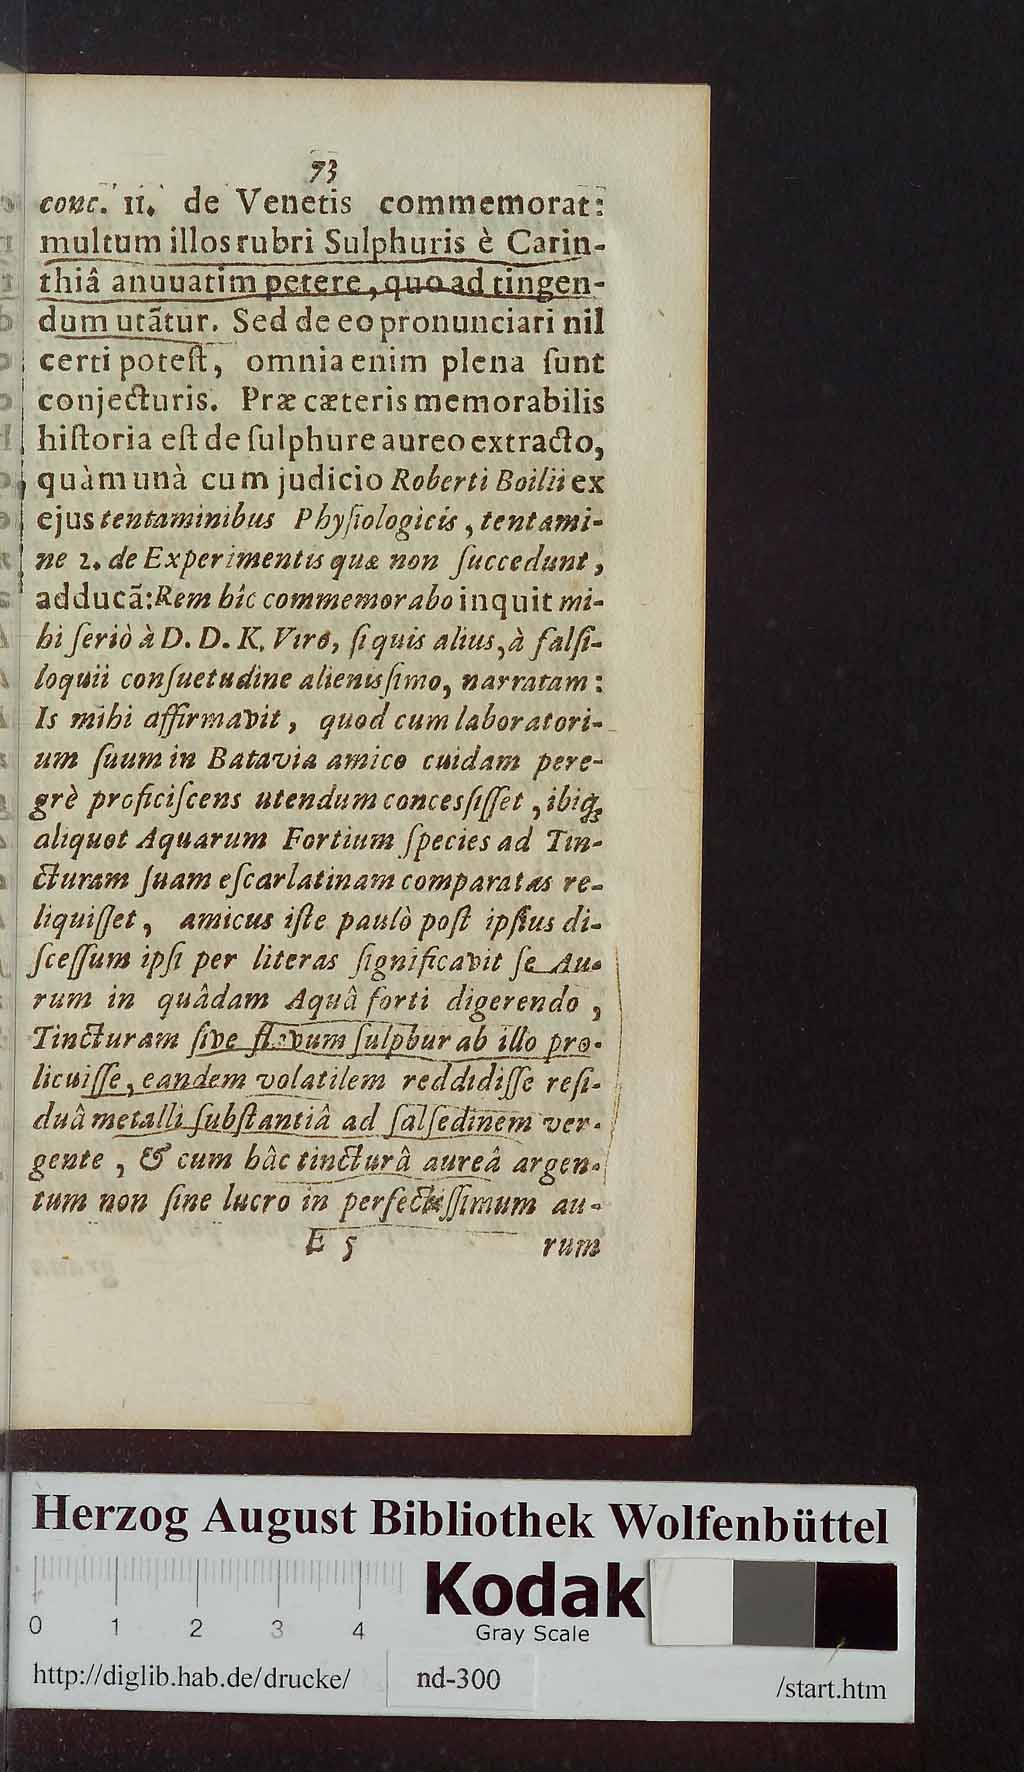 73
conc. 11. de Venetis commemorat:
multum illos rubri Sulphuris è Carin-
thiâ anuuatim petere, quo ad tingen-
dum utãtur. Sed de eo pronunciari nil
certi poteſt, omnia enim plena ſunt
conjecturis. Præ cæteris memorabilis
hiſtoria eſt de ſulphure aureo extracto,
quàm unà cum judicio Roberti Boilii ex
ejus tentaminibus Phyſiologicis, tentami-
ne 2. de Experimentis quæ non ſuccedunt,
adducã: Rem hîc commemorabo inquit mi-
hi ſeriò à D. D. K. Viro, ſi quis alius, à falſi-
loquii conſuetudine alienisſimo, narratam:
Is mihi affirmavit, quod cum laboratori-
um ſuum in Batavia amico cuidam pere-
grè proficiſcens utendum concesſiſſet, ibiq;
aliquot Aquarum Fortium ſpecies ad Tin-
cturam ſuam eſcarlatinam comparatas re-
liquiſſet, amicus iſte paulò poſt ipſius di-
ſceſſum ipſi per literas ſignificavit ſe Au-
rum in quâdam Aquâ forti digerendo,
Tincturam ſive flavum ſulphur ab illo pro-
licuiſſe, eandem volatilem reddidiſſe reſi-
duâ metalli ſubſtantiâ ad ſalſedinem ver-
gente, & cum hâc tincturâ aureâ argen-
tum non ſine lucro in perfectiſſimum au-
E 5 rum
Herzog August Bibliothek Wolfenbüttel
0 1 2 3 4
Kodak
Gray Scale
http://diglib.hab.de/drucke/ nd-300 /start.htm